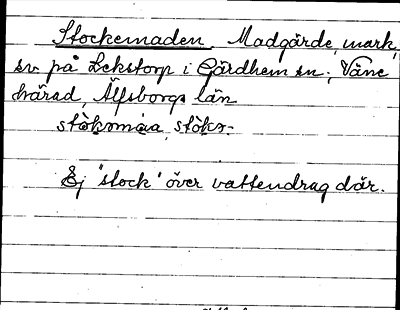 Stockemaden. Madgärde, mark,
sv på Lekstorp i Gärdhem sn, Väne
härad, Älfsborgs län
Ej 'stock' över vattendrag där.